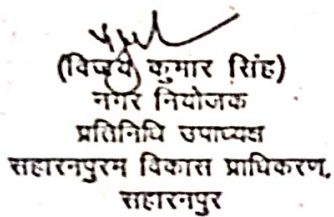 (विजय कुमार सिंह)
नगर नियोजक
प्रतिनिधि उपाध्यक्ष
सहारनपुरम विकास प्राधिकरण,
सहारनपुर